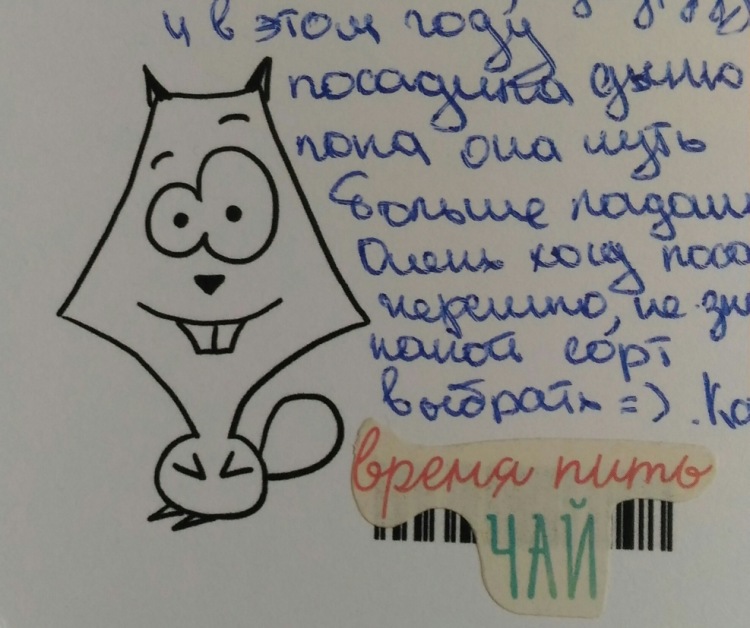 и в этом году
посадила дыню
пока она чуть
больше ладош
Очень хочу поса
черешню, не зн
какой сорт
выбрать =). Ка
время пить
ЧАЙ